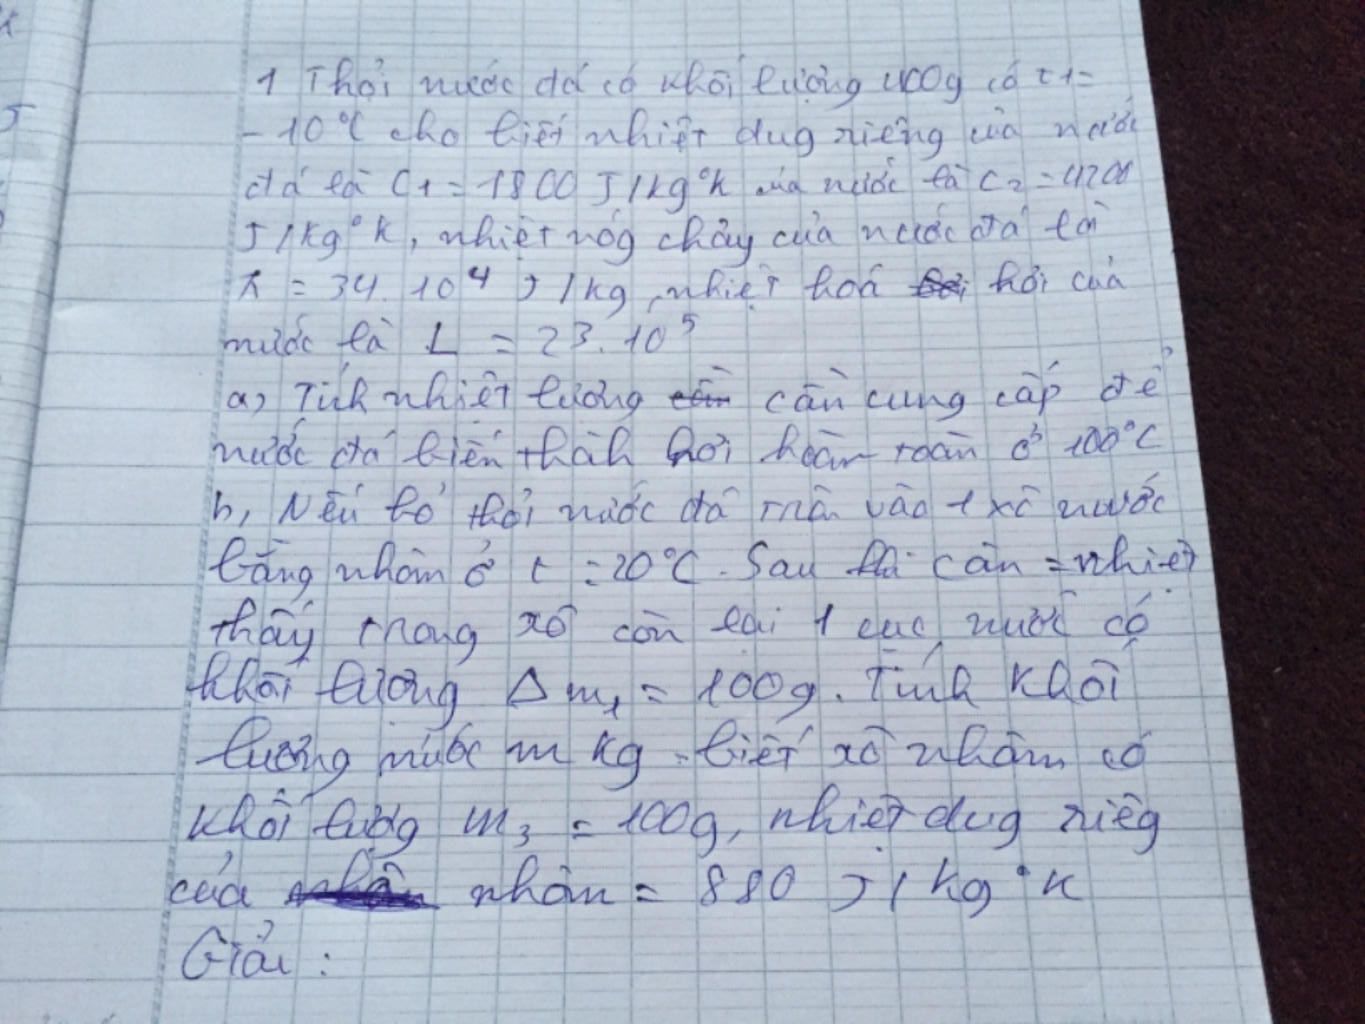 1 Thỏi nước đá có khối lượng 400g có t1=
-10°C cho biết nhiệt dug riêng của nước
đá là C1 = 1800 J/kg°K của nước là C2 = 4200
J/kg°K, nhiệt nóg chảy của nước đá là
λ = 34.10⁴ J/kg, nhiệt hoá hơi của
nước là L = 23.10⁵
a, Tíh nhiệt lượng cần cung cấp để
nước đá biến thàh hơi hoàn toàn ở 100°C
b, Nếu bỏ thỏi nước đá trên vào 1 xô nước
bằng nhôm ở t = 20°C. Sau khi cân = nhiệt
thấy trong xô còn lại 1 cục nước có
khối lượng Δm₁ = 100g. Tính khối
lượng nước m kg. biết xô nhôm có
khối lượg m₃ = 100g, nhiệt dug riêg
của nhôm = 880 J/kg°K
Giải: